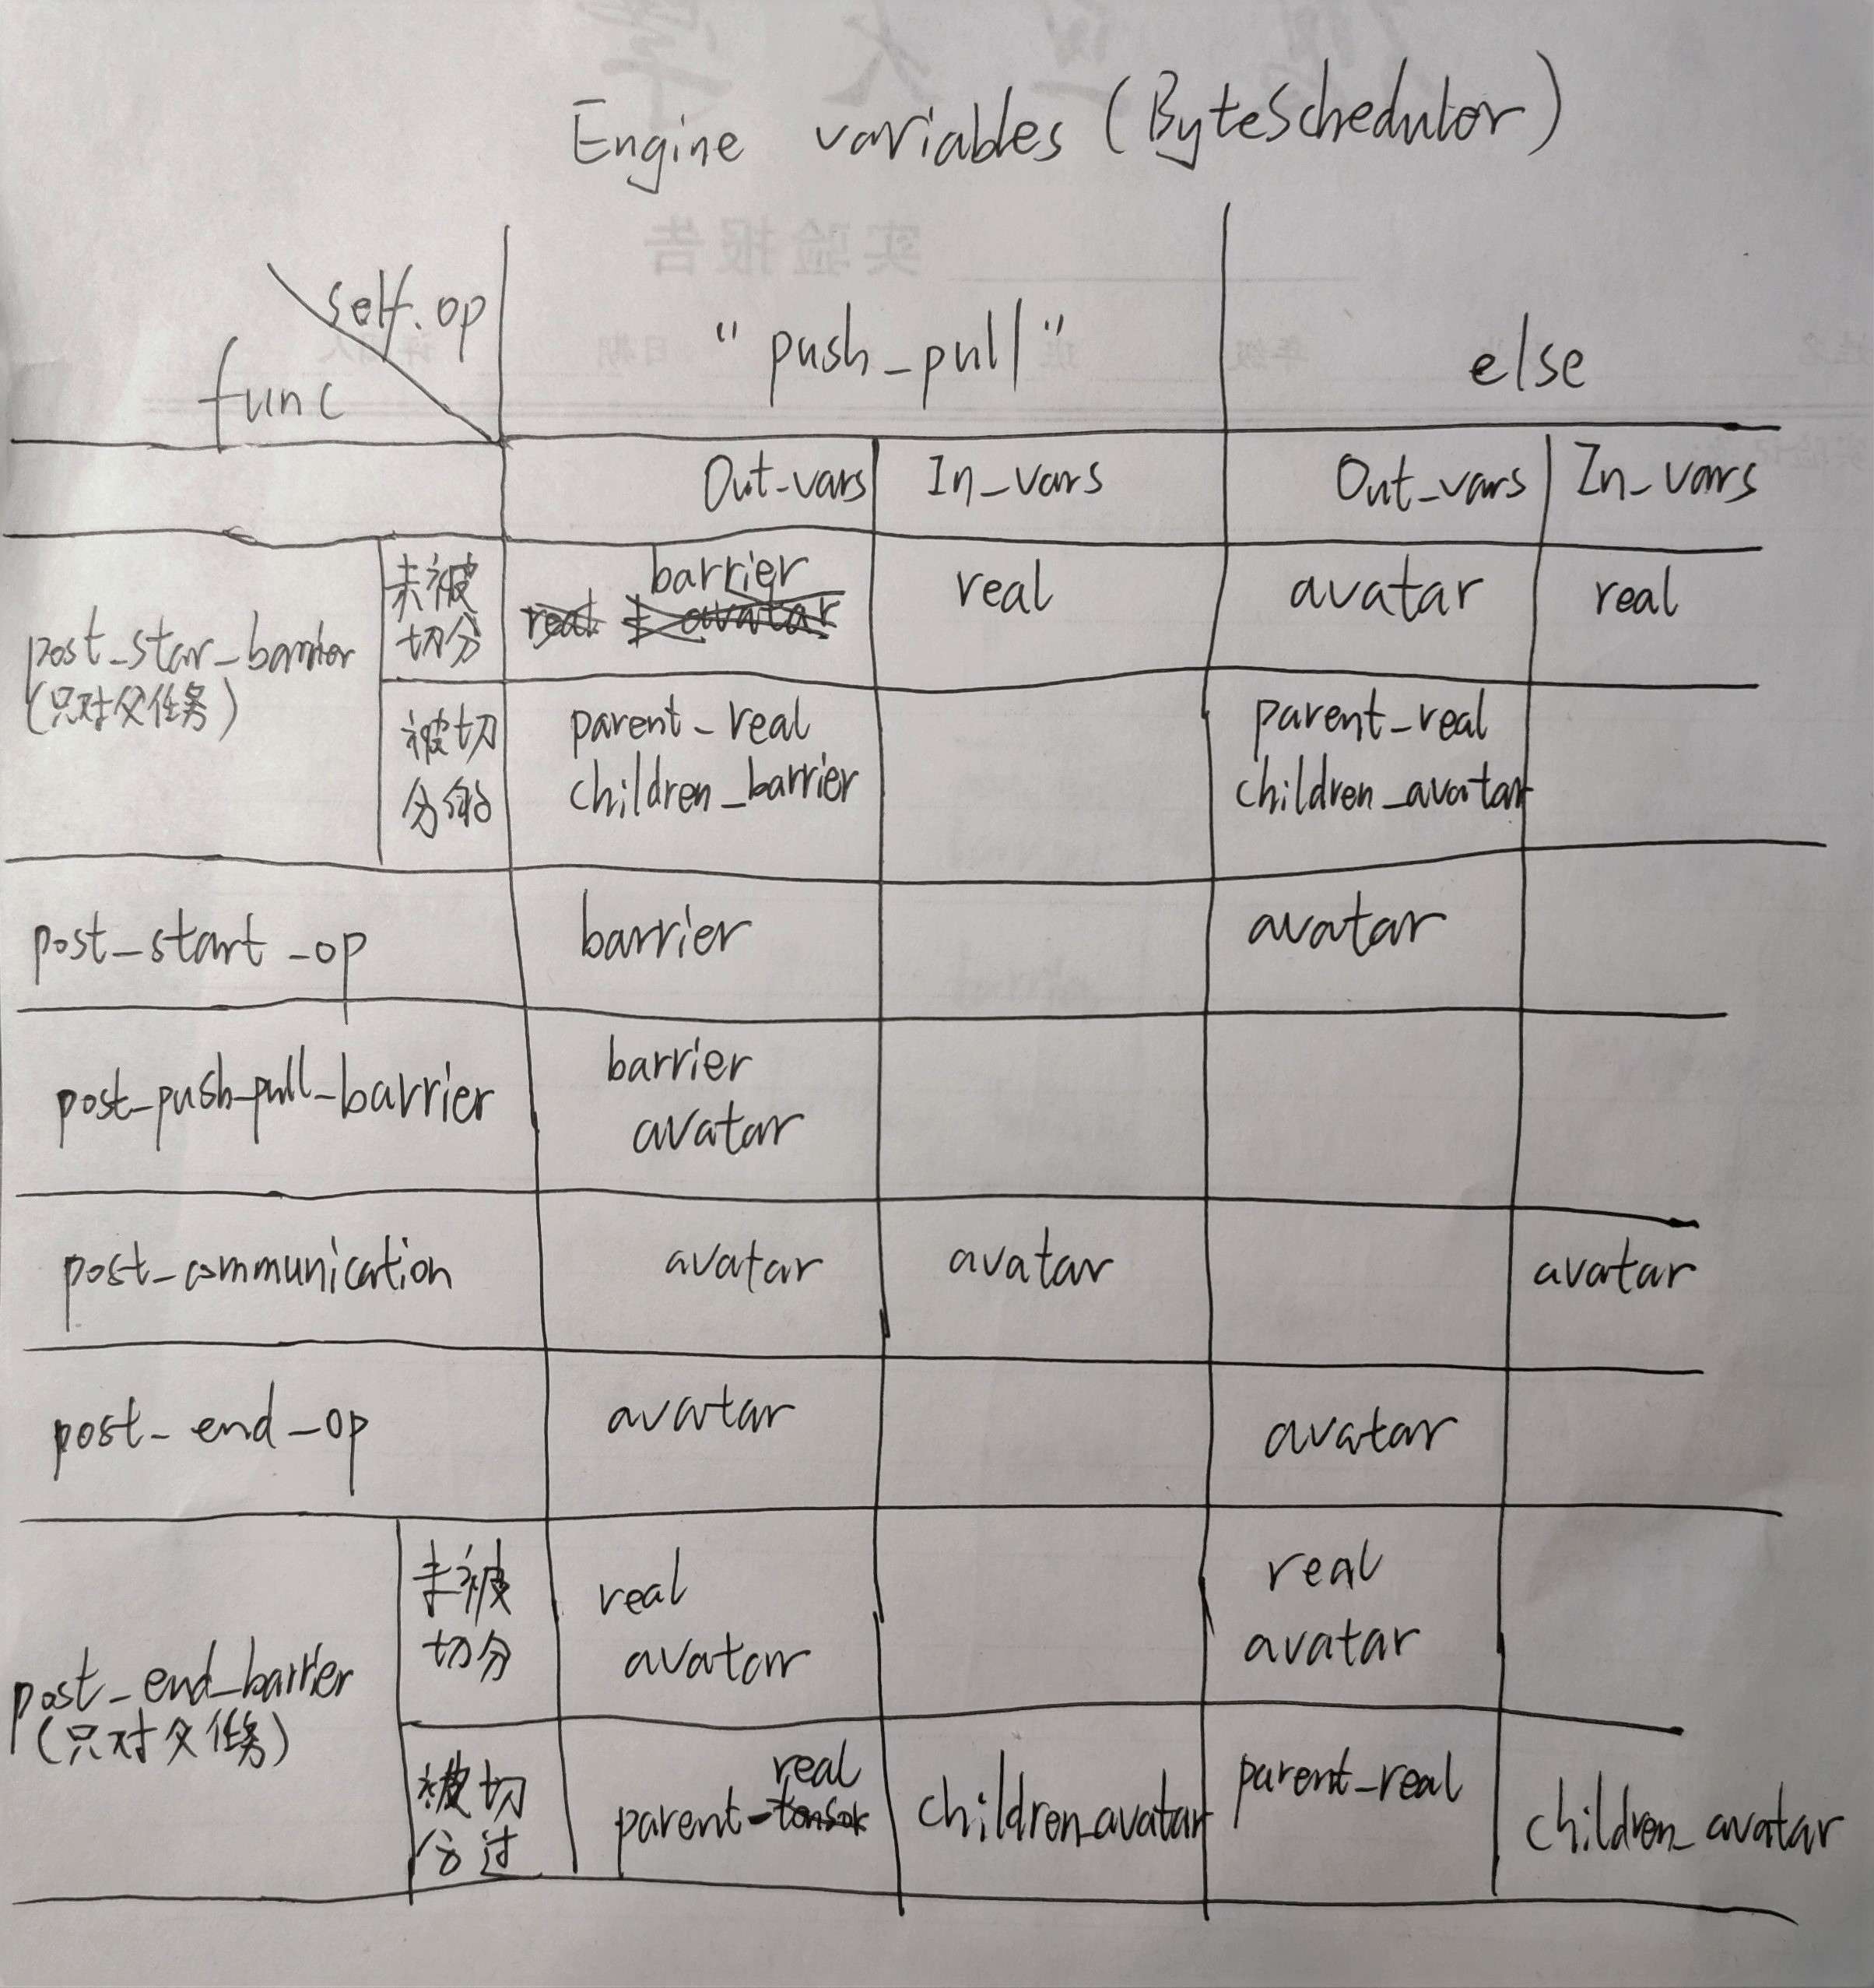 Engine variables (ByteSchedulor)
实验报告
self.op
func
"push_pull"
else
Out_vars In_vars Out_vars In_vars
post_star_barrier
(只对父任务)
未被
切分
barrier
real avatar
real
avatar
real
被切
分的
parent_real
children_barrier
parent_real
children_avatar
post_start_op
barrier
avatar
post_push_pull_barrier
barrier
avatar
post_communication
avatar
avatar
avatar
post_end_op
avatar
avatar
post_end_barrier
(只对父任务)
未被
切分
real
avatar
real
avatar
被切
分过
real
parent_tensor
children_avatar
parent_real
children_avatar